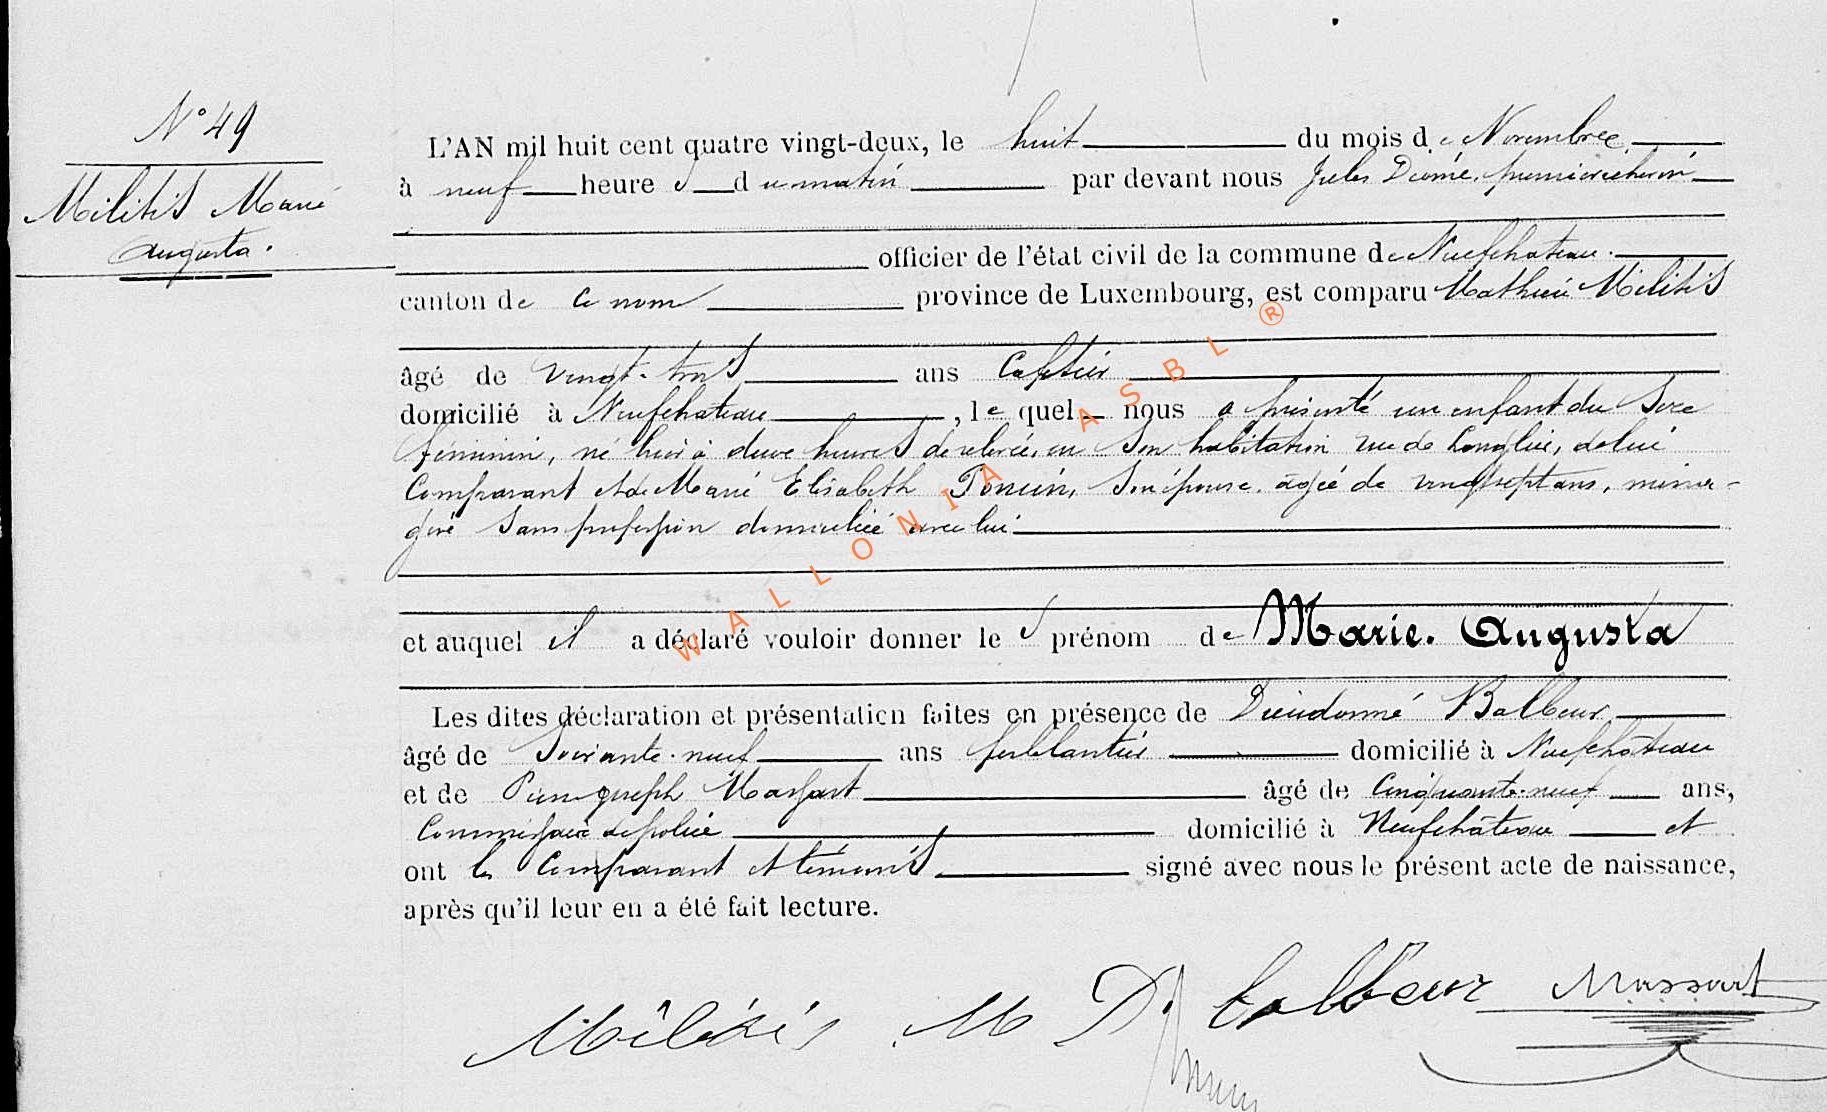 N° 49
Militis Marie
Augusta.
L'AN mil huit cent quatre vingt-deux, le huit du mois de Novembre
à neuf heures du matin par devant nous Jules Diomé, premier échevin
officier de l'état civil de la commune de Neufchateau.
canton de ce nom province de Luxembourg, est comparu Mathieu Militis
âgé de vingt-trois ans Cafetier
domicilié à Neufchateau, le quel nous a présenté un enfant du sexe
féminin, né hier à deux heures de relevée, en son habitation rue de Longlier, de lui
Comparant et de Marie Elisabeth Poncin, son épouse, agée de vingt sept ans, ména-
gère sans profession domiciliée avec lui
et auquel il a déclaré vouloir donner les prénom de Marie. Augusta
Les dites déclaration et présentation faites en présence de Dieudonné Balbeur
âgé de soixante-neuf ans ferblantier domicilié à Neufchâteau
et de Pierre Joseph Massart âgé de Cinquante-neuf ans,
Commissaire de police domicilié à Neufchâteau et
ont les Comparant et témoins signé avec nous le présent acte de naissance,
après qu'il leur en a été fait lecture.
Militis M D. balbeur Massart
WALLONIA ASBL ®